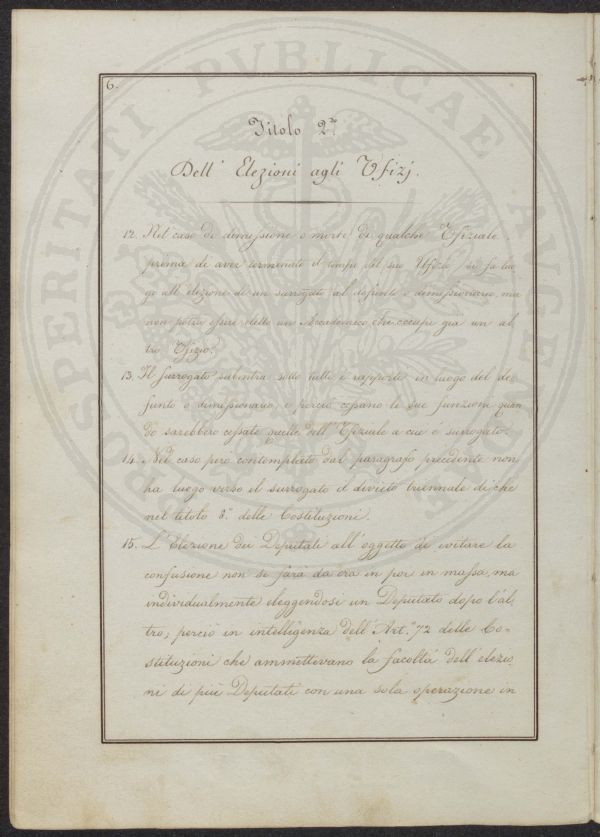 6.
Titolo 2°
Dell' Elezioni agli Ufizj.
12. Nel caso di demissione o morte di qualche Ufiziale
prima di aver terminato il tempo del suo Ufizio, si fa luo
go all' elezione di un surrogato al defunto o demissionario, ma
non potrà essere eletto un Accademico che occupi già un al
tro Ufizio.
13. Il surrogato subentra sotto tutti i rapporti in luogo del de
funto o dimissionario, e perciò cessano le sue funzioni quan
do sarebbero cessate quelle dell' Ufiziale a cui é surrogato.
14. Nel caso però contemplato dal paragrafo precedente non
ha luogo verso il surrogato il divieto triennale di che
nel titolo 8° delle Costituzioni.
15. L'Elezione dei Deputati all' oggetto di evitare la
confusione non si farà da ora in poi in massa, ma
individualmente eleggendosi un Deputato dopo l'al,
tro, perciò in intelligenza dell' Art.° 72 delle Co-
stituzioni che ammettevano la facoltà dell' elezio
ni di più Deputati con una sola operazione in
PROSPERITATI PVBLICAE AVGENDAE